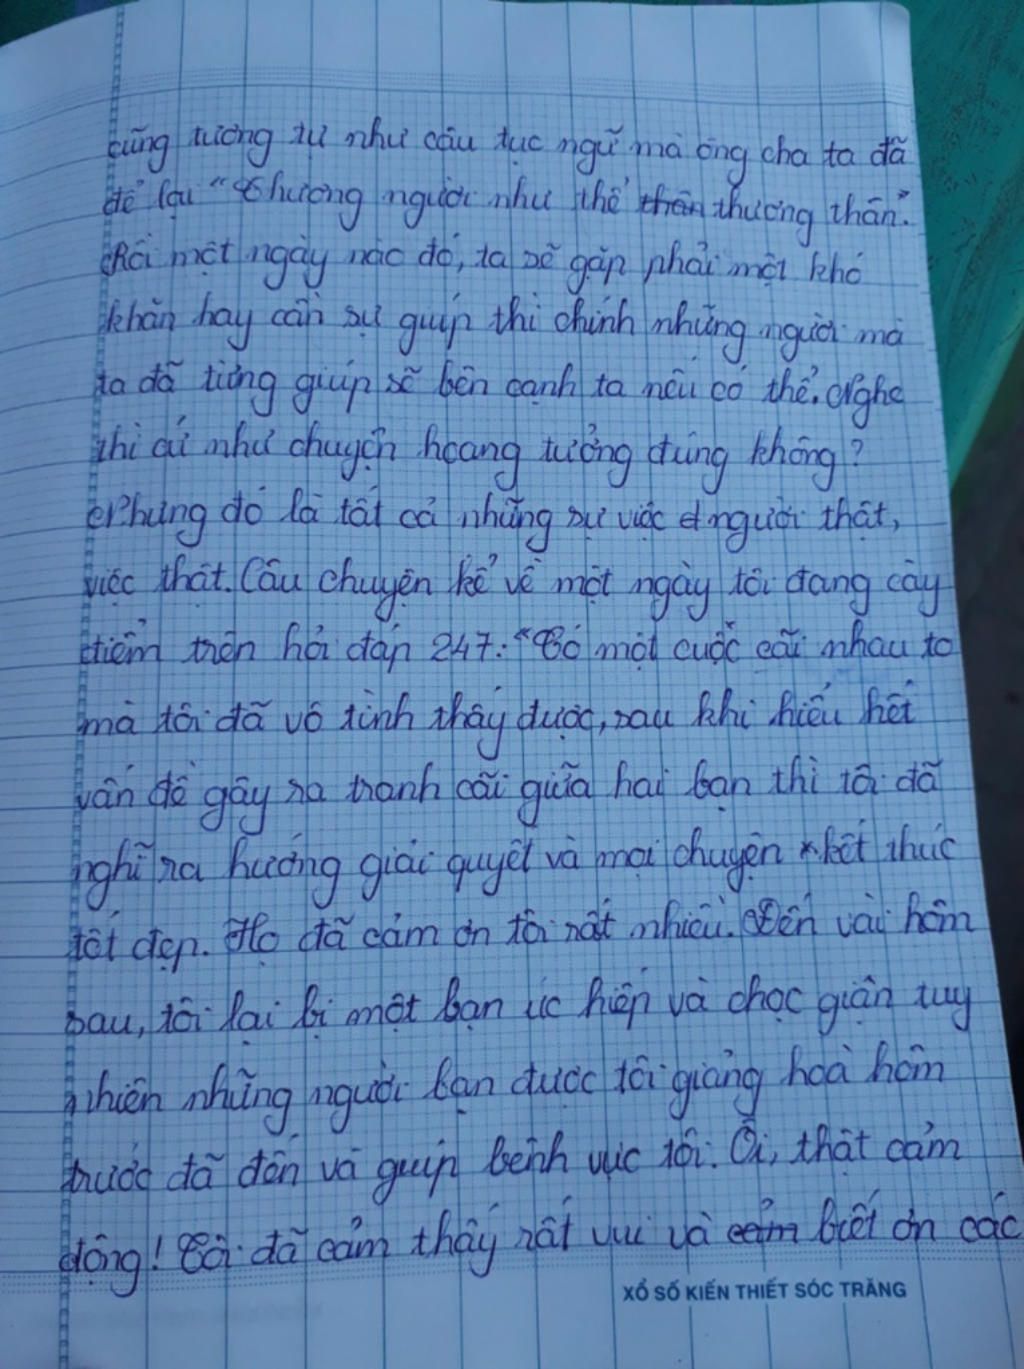 cũng tương tự như câu tục ngữ mà ông cha ta đã
để lại "Thương người như thể thân thương thân".
Rồi một ngày nào đó, ta sẽ gặp phải một khó
khăn hay cần sự giúp thì chính những người mà
ta đã từng giúp sẽ bên cạnh ta nếu có thể. Nghe
thì cứ như chuyện hoang tưởng đúng không?
Nhưng đó là tất cả những sự việc người thật,
việc thật. Câu chuyện kể về một ngày tôi đang cày
điểm trên hỏi đáp 247: "Có một cuộc cãi nhau to
mà tôi đã vô tình thấy được, sau khi hiểu hết
vấn đề gây ra tranh cãi giữa hai bạn thì tôi đã
nghĩ ra hướng giải quyết và mọi chuyện kết thúc
tốt đẹp. Họ đã cảm ơn tôi rất nhiều. Đến vài hôm
sau, tôi lại bị một bạn ức hiếp và chọc giận tuy
nhiên những người bạn được tôi giảng hoà hôm
trước đã đến và giúp bênh vực tôi. Ôi, thật cảm
động! Tôi đã cảm thấy rất vui và cảm biết ơn các
XỔ SỐ KIẾN THIẾT SÓC TRĂNG